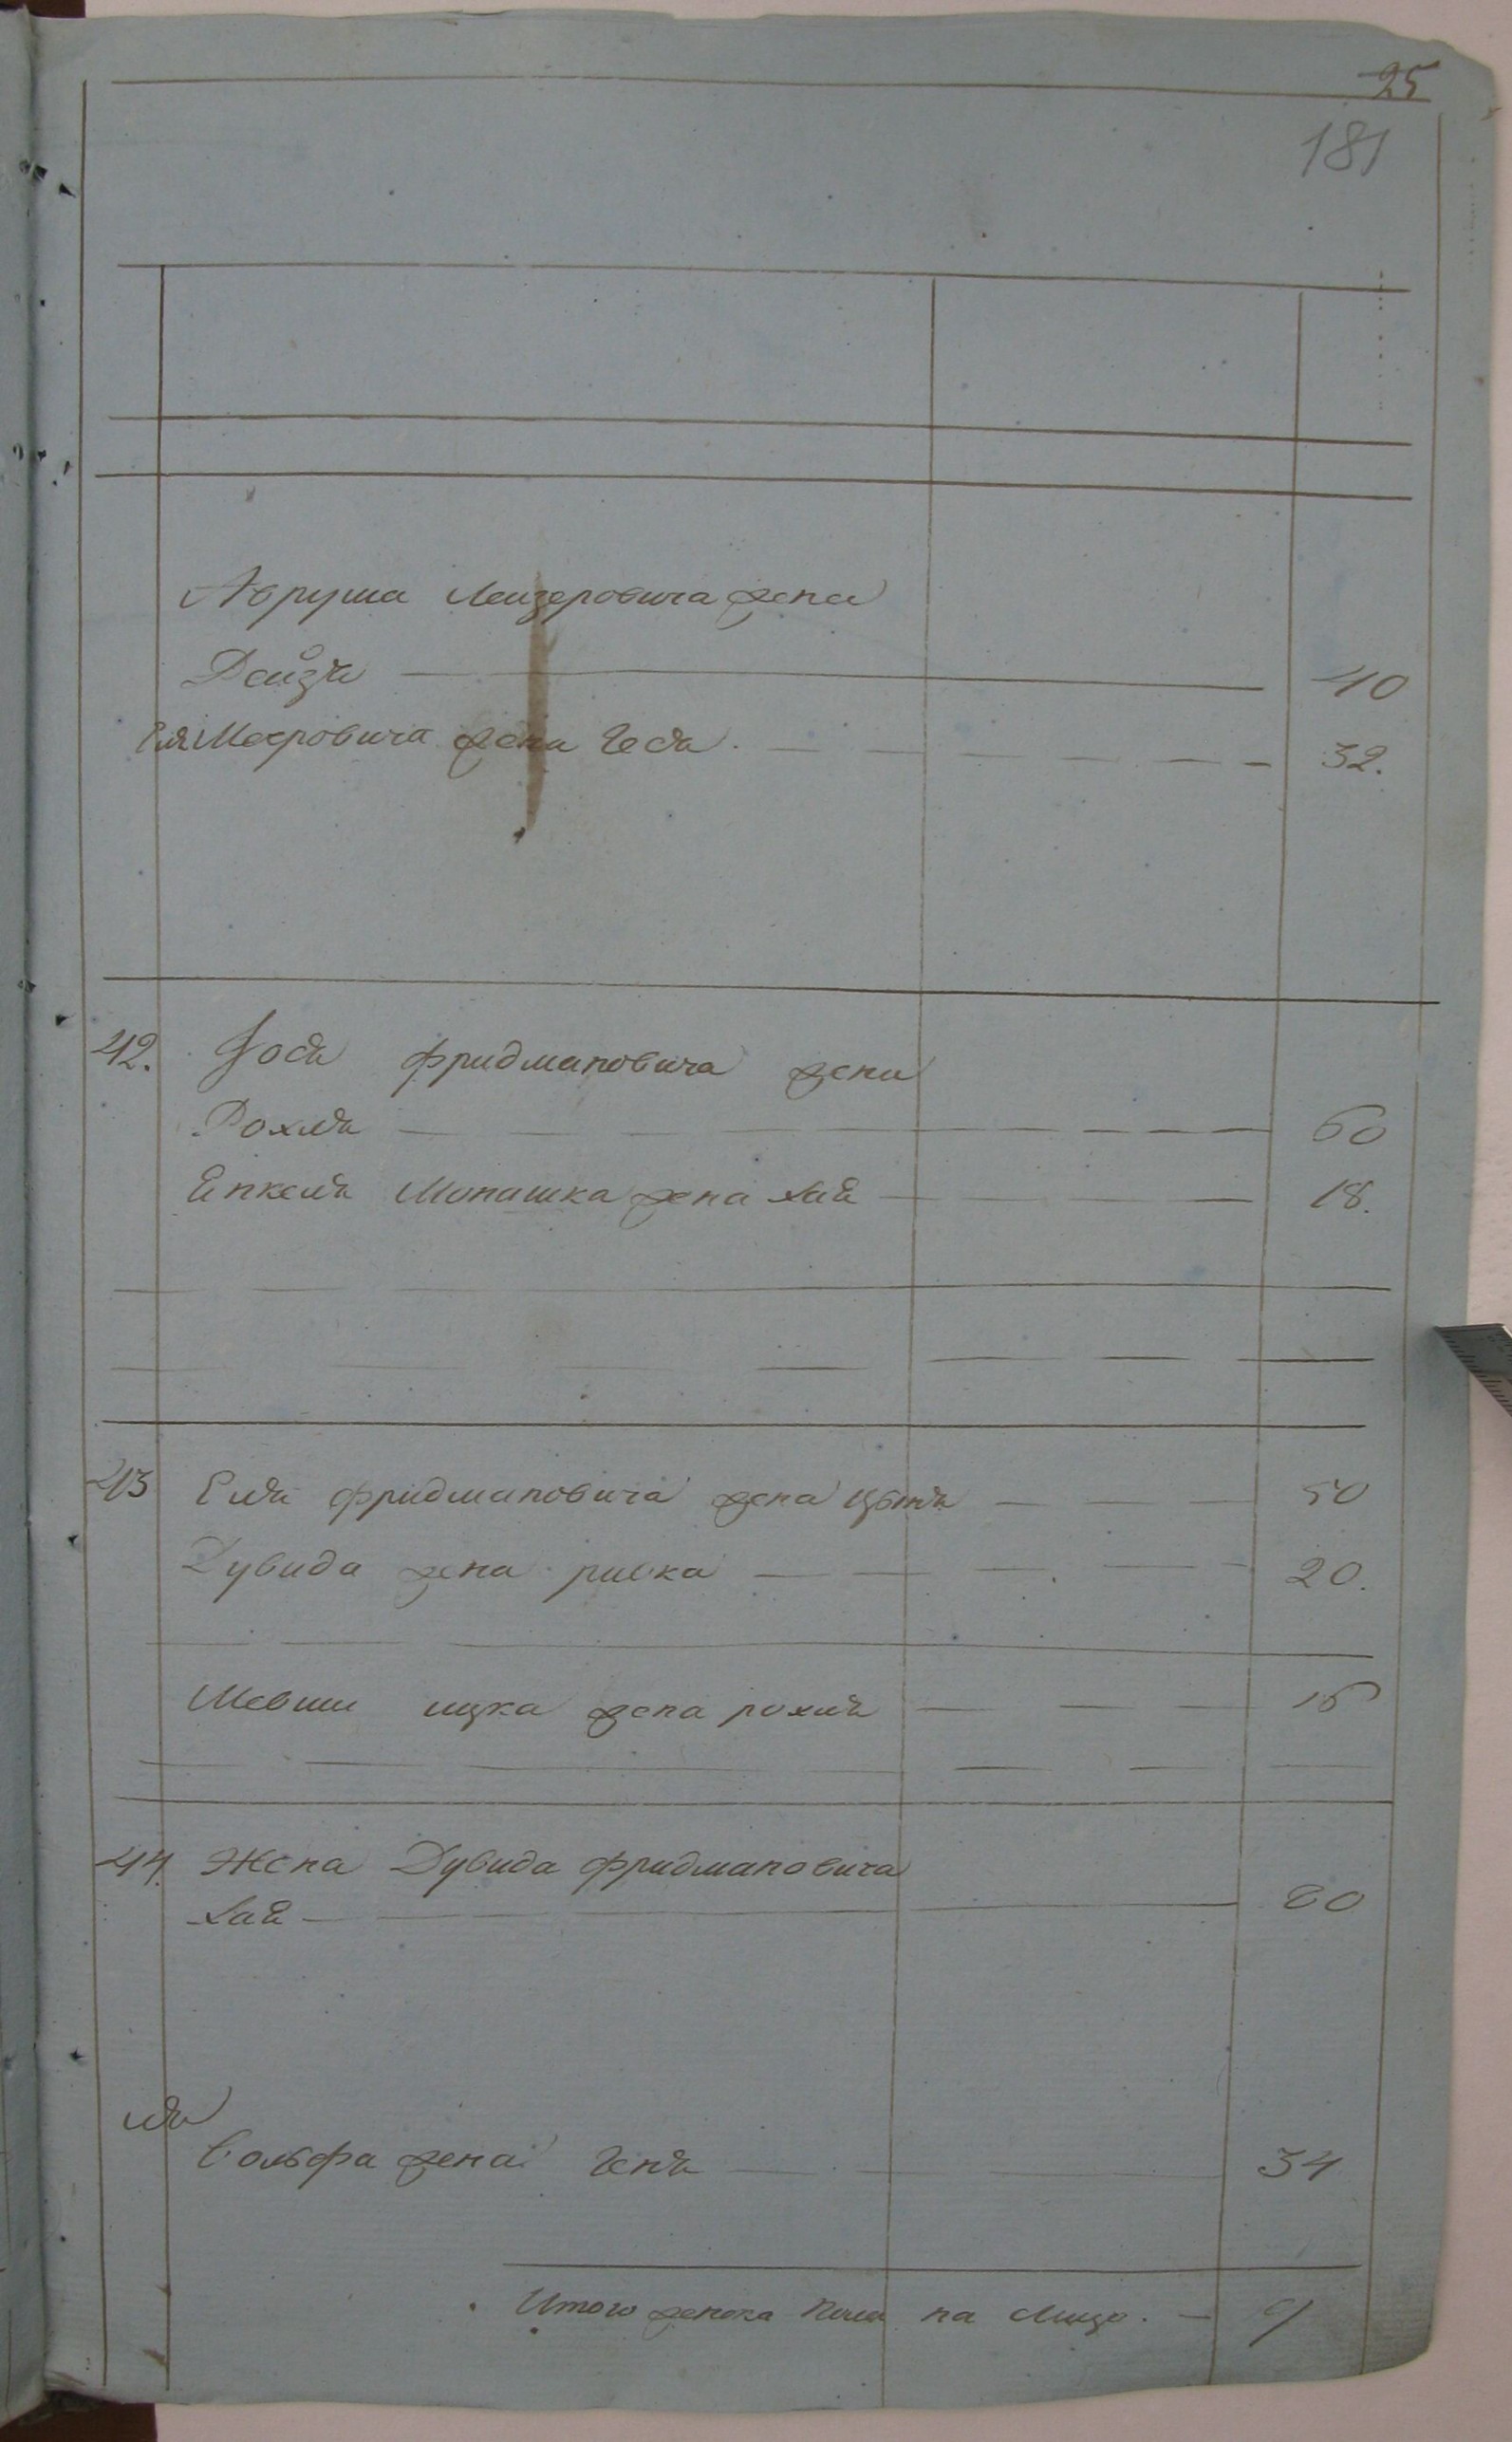 25
181
Авруша Лейзеровича жена
Рейзя 40
Еля Мееровича жена Геся 32.
42. Іося Фридмановича жена
Рохля 60
Енкеля Монашка жена Хаѣ 18.
43 Еля Фридмановича жена Цытя 50
Дувида жена ривка 20.
Мовши ицка жена рохля 16
44. Жена Дувида Фридмановича
Хаѣ 60
Вольфа жена Геня 34
Итого женска пола на лицо. 9